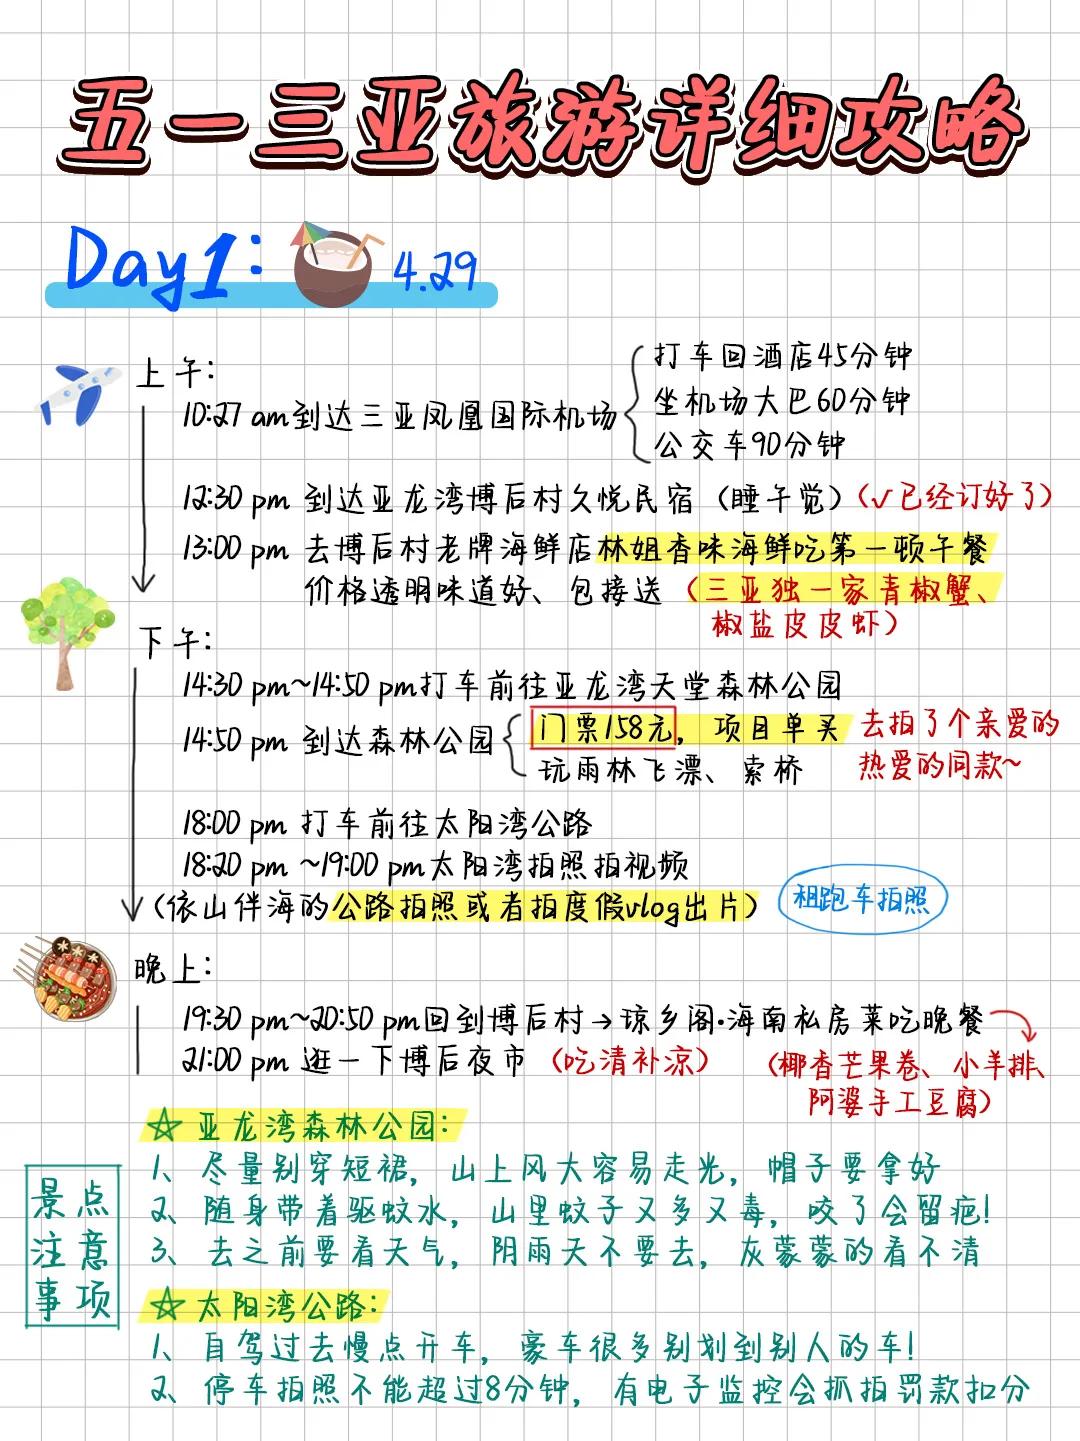 五一三亚旅游详细攻略
Day1: 4.29
上午:
10:27 am到达三亚凤凰国际机场
打车回酒店45分钟
坐机场大巴60分钟
公交车90分钟
12:30 pm 到达亚龙湾博后村久悦民宿（睡午觉）（√已经订好了）
13:00 pm 去博后村老牌海鲜店林姐香味海鲜吃第一顿午餐
价格透明味道好、包接送（三亚独一家青椒蟹、
椒盐皮皮虾）
下午:
14:30 pm~14:50 pm打车前往亚龙湾天堂森林公园
14:50 pm 到达森林公园
门票158元，项目单买
玩雨林飞漂、索桥
去拍了个亲爱的
热爱的同款~
18:00 pm 打车前往太阳湾公路
18:20 pm ~19:00 pm太阳湾拍照拍视频
（依山伴海的公路拍照或者拍度假vlog出片）
租跑车拍照
晚上:
19:30 pm~20:50 pm回到博后村→琼乡阁·海南私房菜吃晚餐
21:00 pm 逛一下博后夜市（吃清补凉）
（椰香芒果卷、小羊排、
阿婆手工豆腐）
景点
注意
事项
☆ 亚龙湾森林公园:
1、尽量别穿短裙，山上风大容易走光，帽子要拿好
2、随身带着驱蚊水，山里蚊子又多又毒，咬了会留疤!
3、去之前要看天气，阴雨天不要去，灰蒙蒙的看不清
☆ 太阳湾公路:
1、自驾过去慢点开车，豪车很多别划到别人的车!
2、停车拍照不能超过8分钟，有电子监控会抓拍罚款扣分